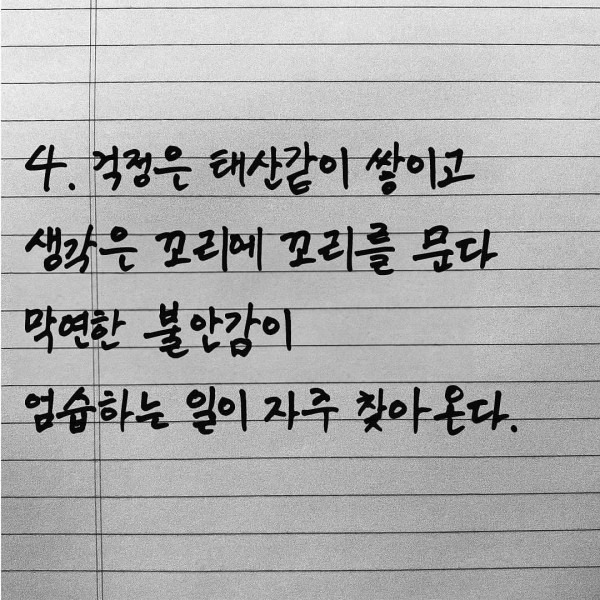 4. 걱정은 태산같이 쌓이고
생각은 꼬리에 꼬리를 문다
막연한 불안감이
엄습하는 일이 자주 찾아온다.